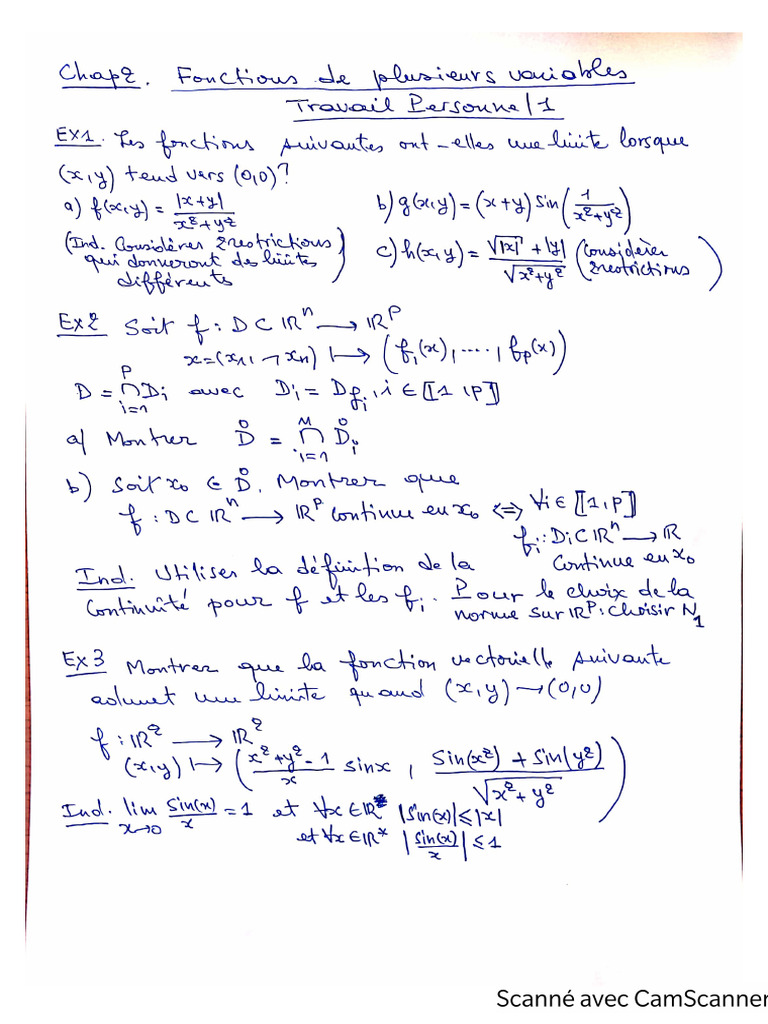 Chap2. Fonctions de plusieurs variables
Travail Personnel 1
EX1. Les fonctions suivantes ont-elles une limite lorsque
(x,y) tend vers (0,0)?
a) f(x,y) = |x+y| / (x²+y²)
b) g(x,y) = (x+y) sin(1/(x²+y²))
(Ind. Considérer 2 restrictions
qui donneront des limites
différents)
c) h(x,y) = (√|x| + |y|) / √(x²+y²) (Considérer
2 restrictions)
Ex2 Soit f : D ⊂ ℝⁿ ⟶ ℝᵖ
x=(x₁, ..., xₙ) ⟼ (f₁(x), ...., fₚ(x))
D = ⋂_{i=1}^{p} Dᵢ avec Dᵢ = D_{fᵢ}, i ∈ ⟦1,p⟧
a) Montrer D̊ = ⋂_{i=1}^{M} D̊ᵢ
b) Soit x₀ ∈ D̊. Montrer que
f : D ⊂ ℝⁿ ⟶ ℝᵖ continue en x₀ ⟺ ∀i ∈ ⟦1,p⟧
fᵢ : Dᵢ ⊂ ℝⁿ ⟶ ℝ
continue en x₀
Ind. Utiliser la définition de la
continuité pour f et les fᵢ. Pour le choix de la
norme sur ℝᵖ : choisir N₁
Ex3 Montrer que la fonction vectorielle suivante
admet une limite quand (x,y) → (0,0)
f : ℝ² ⟶ ℝ²
(x,y) ⟼ ((x²+y²-1)/x sinx , (sin(x²) + sin(y²))/√(x²+y²))
Ind. lim_{x→0} sin(x)/x = 1 et ∀x∈ℝ |sin(x)| ≤ |x|
et ∀x∈ℝ* |sin(x)/x| ≤ 1
Scanné avec CamScanner